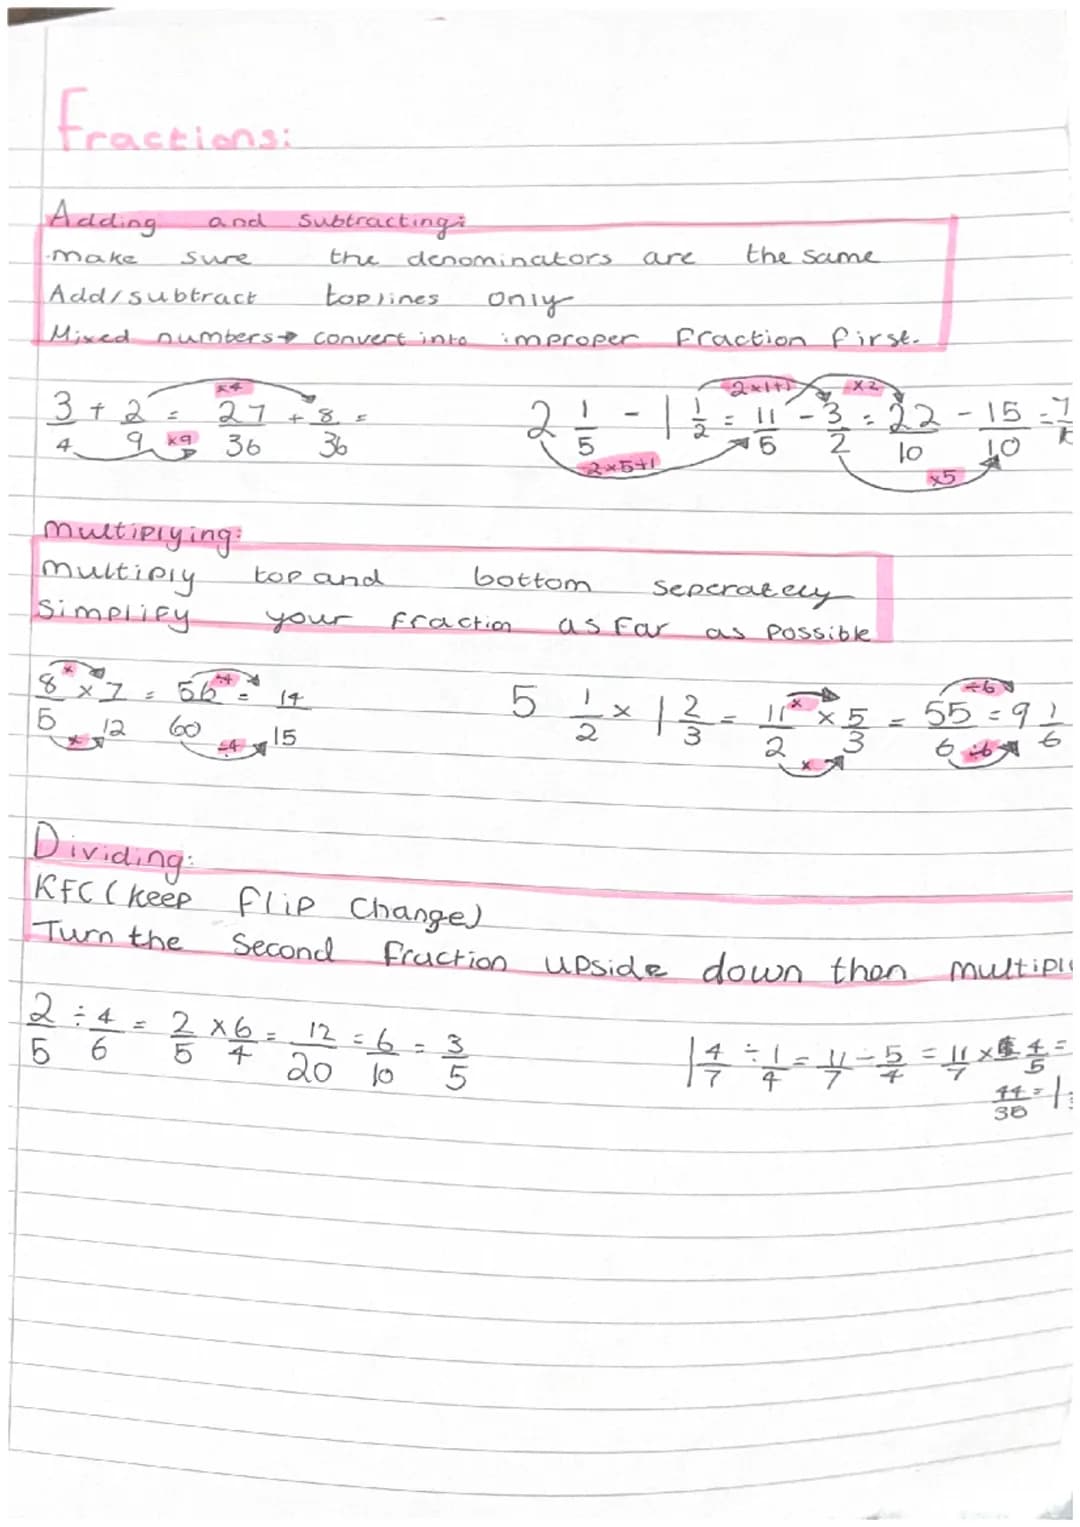 Fractions:
Adding and subtracting:
·make sure the denominators are the same
Add/subtract toplines only
Mixed numbers→ convert into improper fraction first.
×4 2×1+1 ×2
3/4 + 2/9 = 27/36 + 8/36 = 2 1/5 - 1 1/2 = 11/5 - 3/2 = 22/10 - 15/10 = 7/
×9 2×5+1 ×5
multiplying:
multiply top and bottom seperately
Simplify your fraction as far as possible
× ÷4 × ÷6
8/5 × 7/12 = 56/60 = 14/15 5 1/2 × 1 2/3 = 11/2 × 5/3 = 55/6 = 9 1/6
× ÷4 × ÷6
Dividing:
KFC (keep flip Change)
Turn the Second fraction upside down then
2/5 ÷ 4/6 = 2/5 × 6/4 = 12/20 = 6/10 = 3/5 1 4/7 ÷ 1/4 = 11/7 ÷ 5/4 = 11/7 × 4/5 =
44/35 = 1